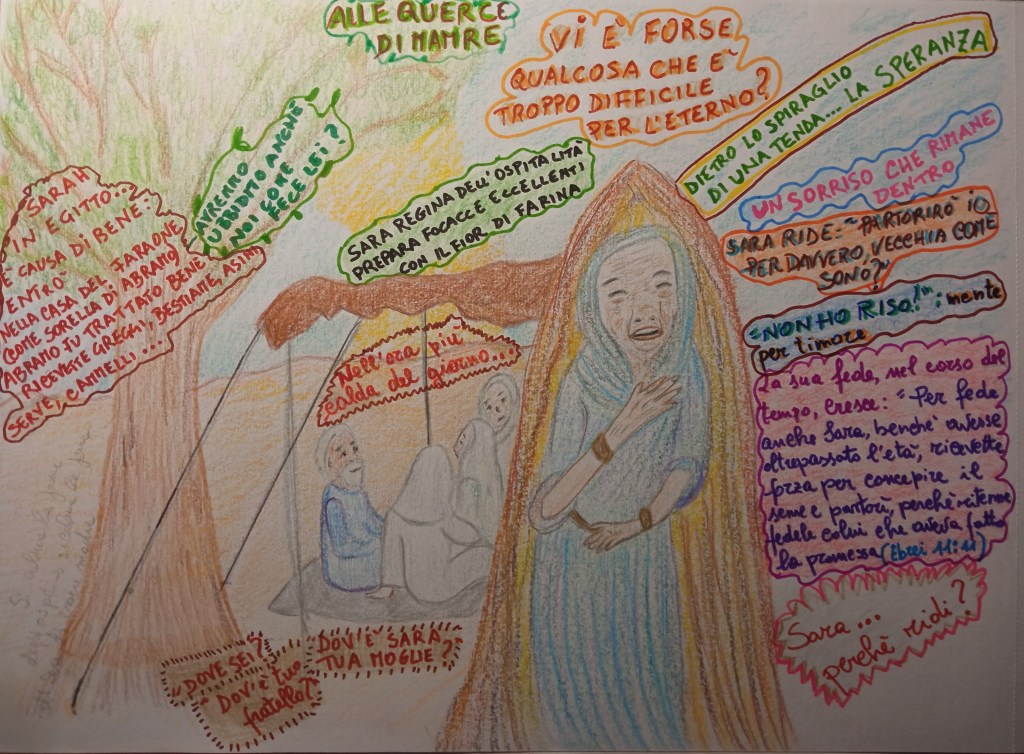 ALLE QUERCE
DI MAMRE
VI È FORSE
QUALCOSA CHE E'
TROPPO DIFFICILE
PER L'ETERNO?
DIETRO LO SPIRAGLIO
DI UNA TENDA... LA SPERANZA
AVREMO
UBBIDITO ANCHE
NOI COME
FECE LEI?
SARA REGINA DELL'OSPITALITÀ
PREPARA FOCACCE ECCELLENTI
CON IL FIOR DI FARINA
UN SORRISO CHE RIMANE
DENTRO
SARAH
IN EGITTO...
È CAUSA DI BENE:
ENTRÒ
NELLA CASA DEL FARAONE
(COME SORELLA DI ABRAMO)
ABRAMO FU TRATTATO BENE
RICEVETE GREGGI, BESTIAME, ASINI,
SERVE, CAMMELLI...
SARA RIDE: "PARTORIRÒ IO
PER DAVVERO, VECCHIA COME
SONO?"
"NON HO RISO!": mente
per timore
Nell'ora più
calda del giorno...
La sua fede, nel corso del
tempo, cresce: "Per fede
anche Sara, benchè avesse
oltrepassato l'età, ricevette
forza per concepire il
seme e partorì, perchè ritenne
fedele colui che aveva fatto
la promessa (Ebrei 11:11)
Sara...
perchè ridi?
DOVE SEI?
DOV'È tuo
fratello?
DOV'È SARA
TUA MOGLIE?